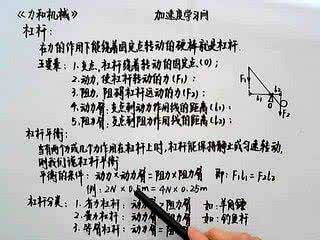 《力和机械》 加速度学习网
杠杆:
在力的作用下能绕着固定点转动的硬棒就是杠杆.
五要素: 1.支点,杠杆绕着转动的固定点(O);
2.动力,使杠杆转动的力(F₁);
3.阻力,阻碍杠杆运动的力(F₂);
4.动力臂:支点到动力作用线的距离(l₁);
5.阻力臂:支点到阻力作用线的距离(l₂);
F₁
l₁
l₂
O
F₂
杠杆平衡:
当有两个力或几个力作用在杠杆上时,杠杆能保持静止或匀速转动,
则我们说杠杆平衡
平衡的条件: 动力×动力臂=阻力×阻力臂 即: F₁l₁=F₂l₂
例: 2N×0.5m=4N×0.25m
杠杆分类: 1.省力杠杆: 动力臂>阻力臂 如:羊角锤
2.费力杠杆: 动力臂 阻力臂 如:钓鱼杆
3.等臂杠杆: 动力臂=阻力臂